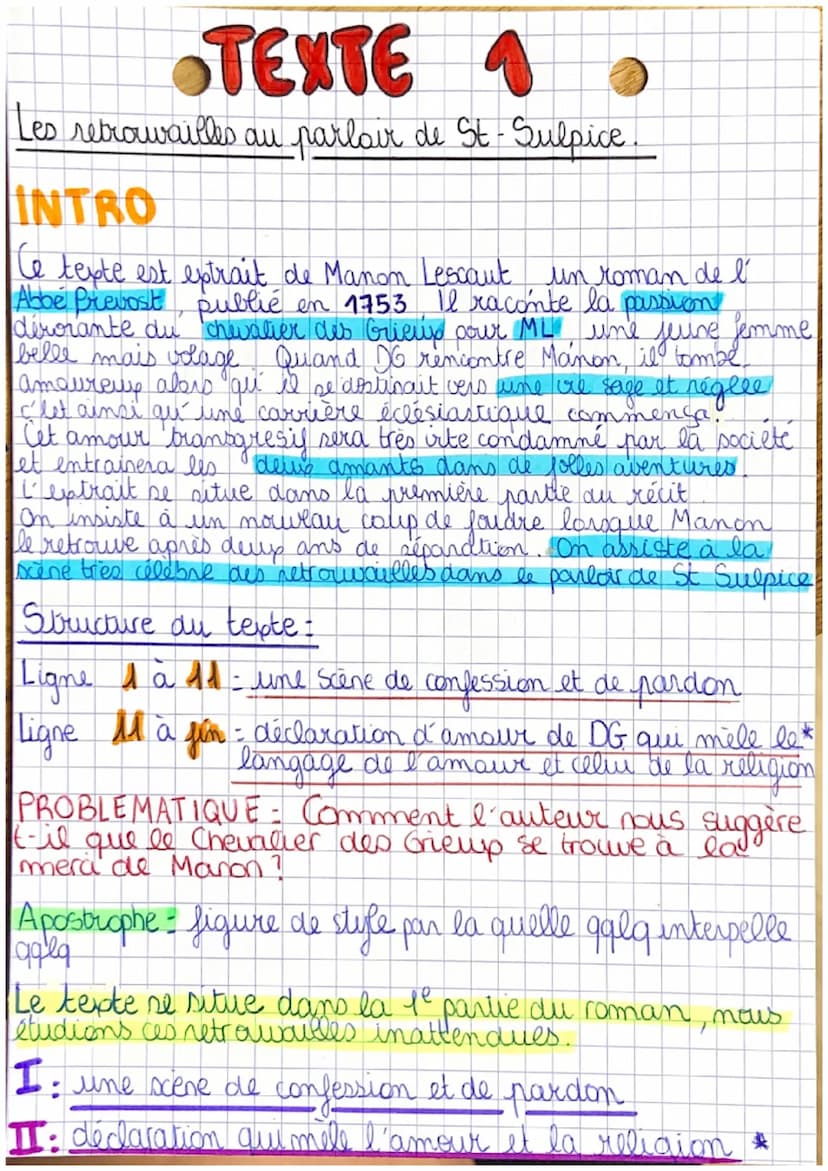 TEXTE 1
Les retrouvailles au parloir de St-Sulpice.
INTRO
Ce texte est extrait de Manon Lescaut un roman de l'
Abbé Prevost, publié en 1753 Il raconte la passion
dévorante du chevalier des Grieux pour ML, une jeune femme
belle mais volage. Quand DG rencontre Manon, il tombe
amoureux alors qu'il se destinait vers une vie sage et réglée
c'est ainsi qu'une carrière éclésiastique commença.
Cet amour transgresif sera très vite condamné par la société
et entrainera les deux amants dans de folles aventures.
L'extrait se situe dans la première partie du récit.
On insiste à un nouveau coup de foudre lorsque Manon
le retrouve après deux ans de séparation. On assiste à la
scène très célèbre des retrouvailles dans le parloir de St Sulpice
Structure du texte :
Ligne 1 à 11 = une scène de confession et de pardon
Ligne 11 à fin = déclaration d'amour de DG qui mêle le*
langage de l'amour et celui de la religion
PROBLEMATIQUE = Comment l'auteur nous suggère
t-il que le Chevalier des Grieux se trouve à la
merci de Manon ?
Apostrophe = figure de style par la quelle qqlq interpelle
qqlq
Le texte se situe dans la 1e partie du roman, nous
étudions ces retrouvailles inattendues.
I : une scène de confession et de pardon
II : déclaration qui mêle l'amour et la religion *